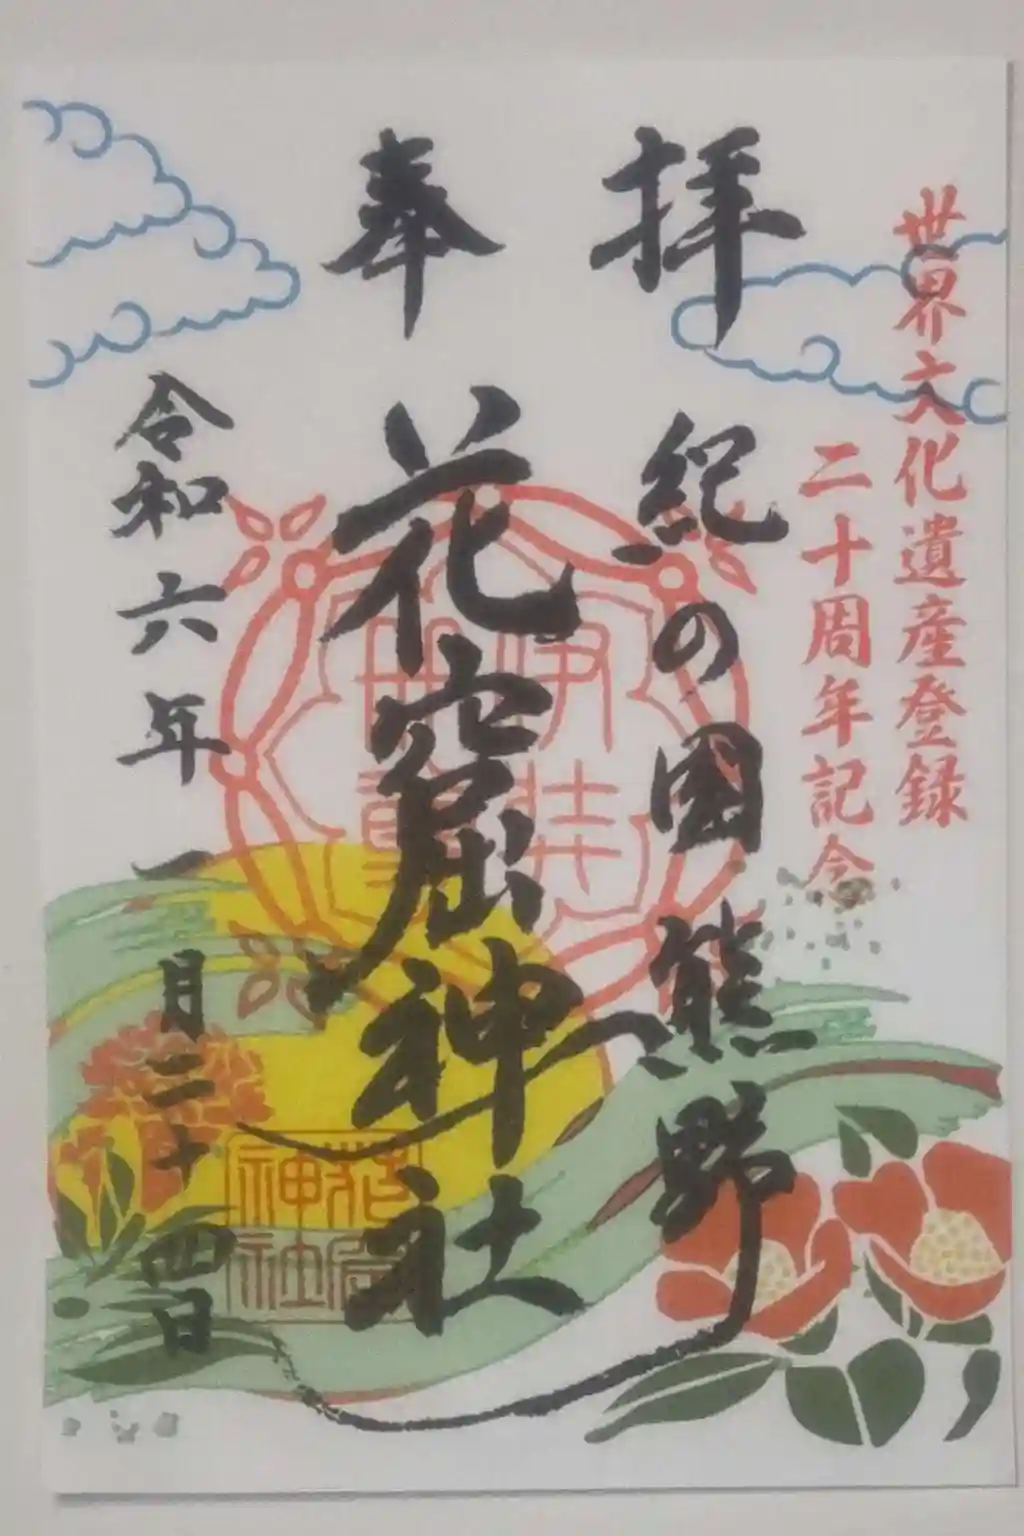 世界文化遺産登録
二十周年記念
奉拝
紀の國熊野
花窟神社
令和六年一月二十四日
伊弉
冊尊
花窟
神社